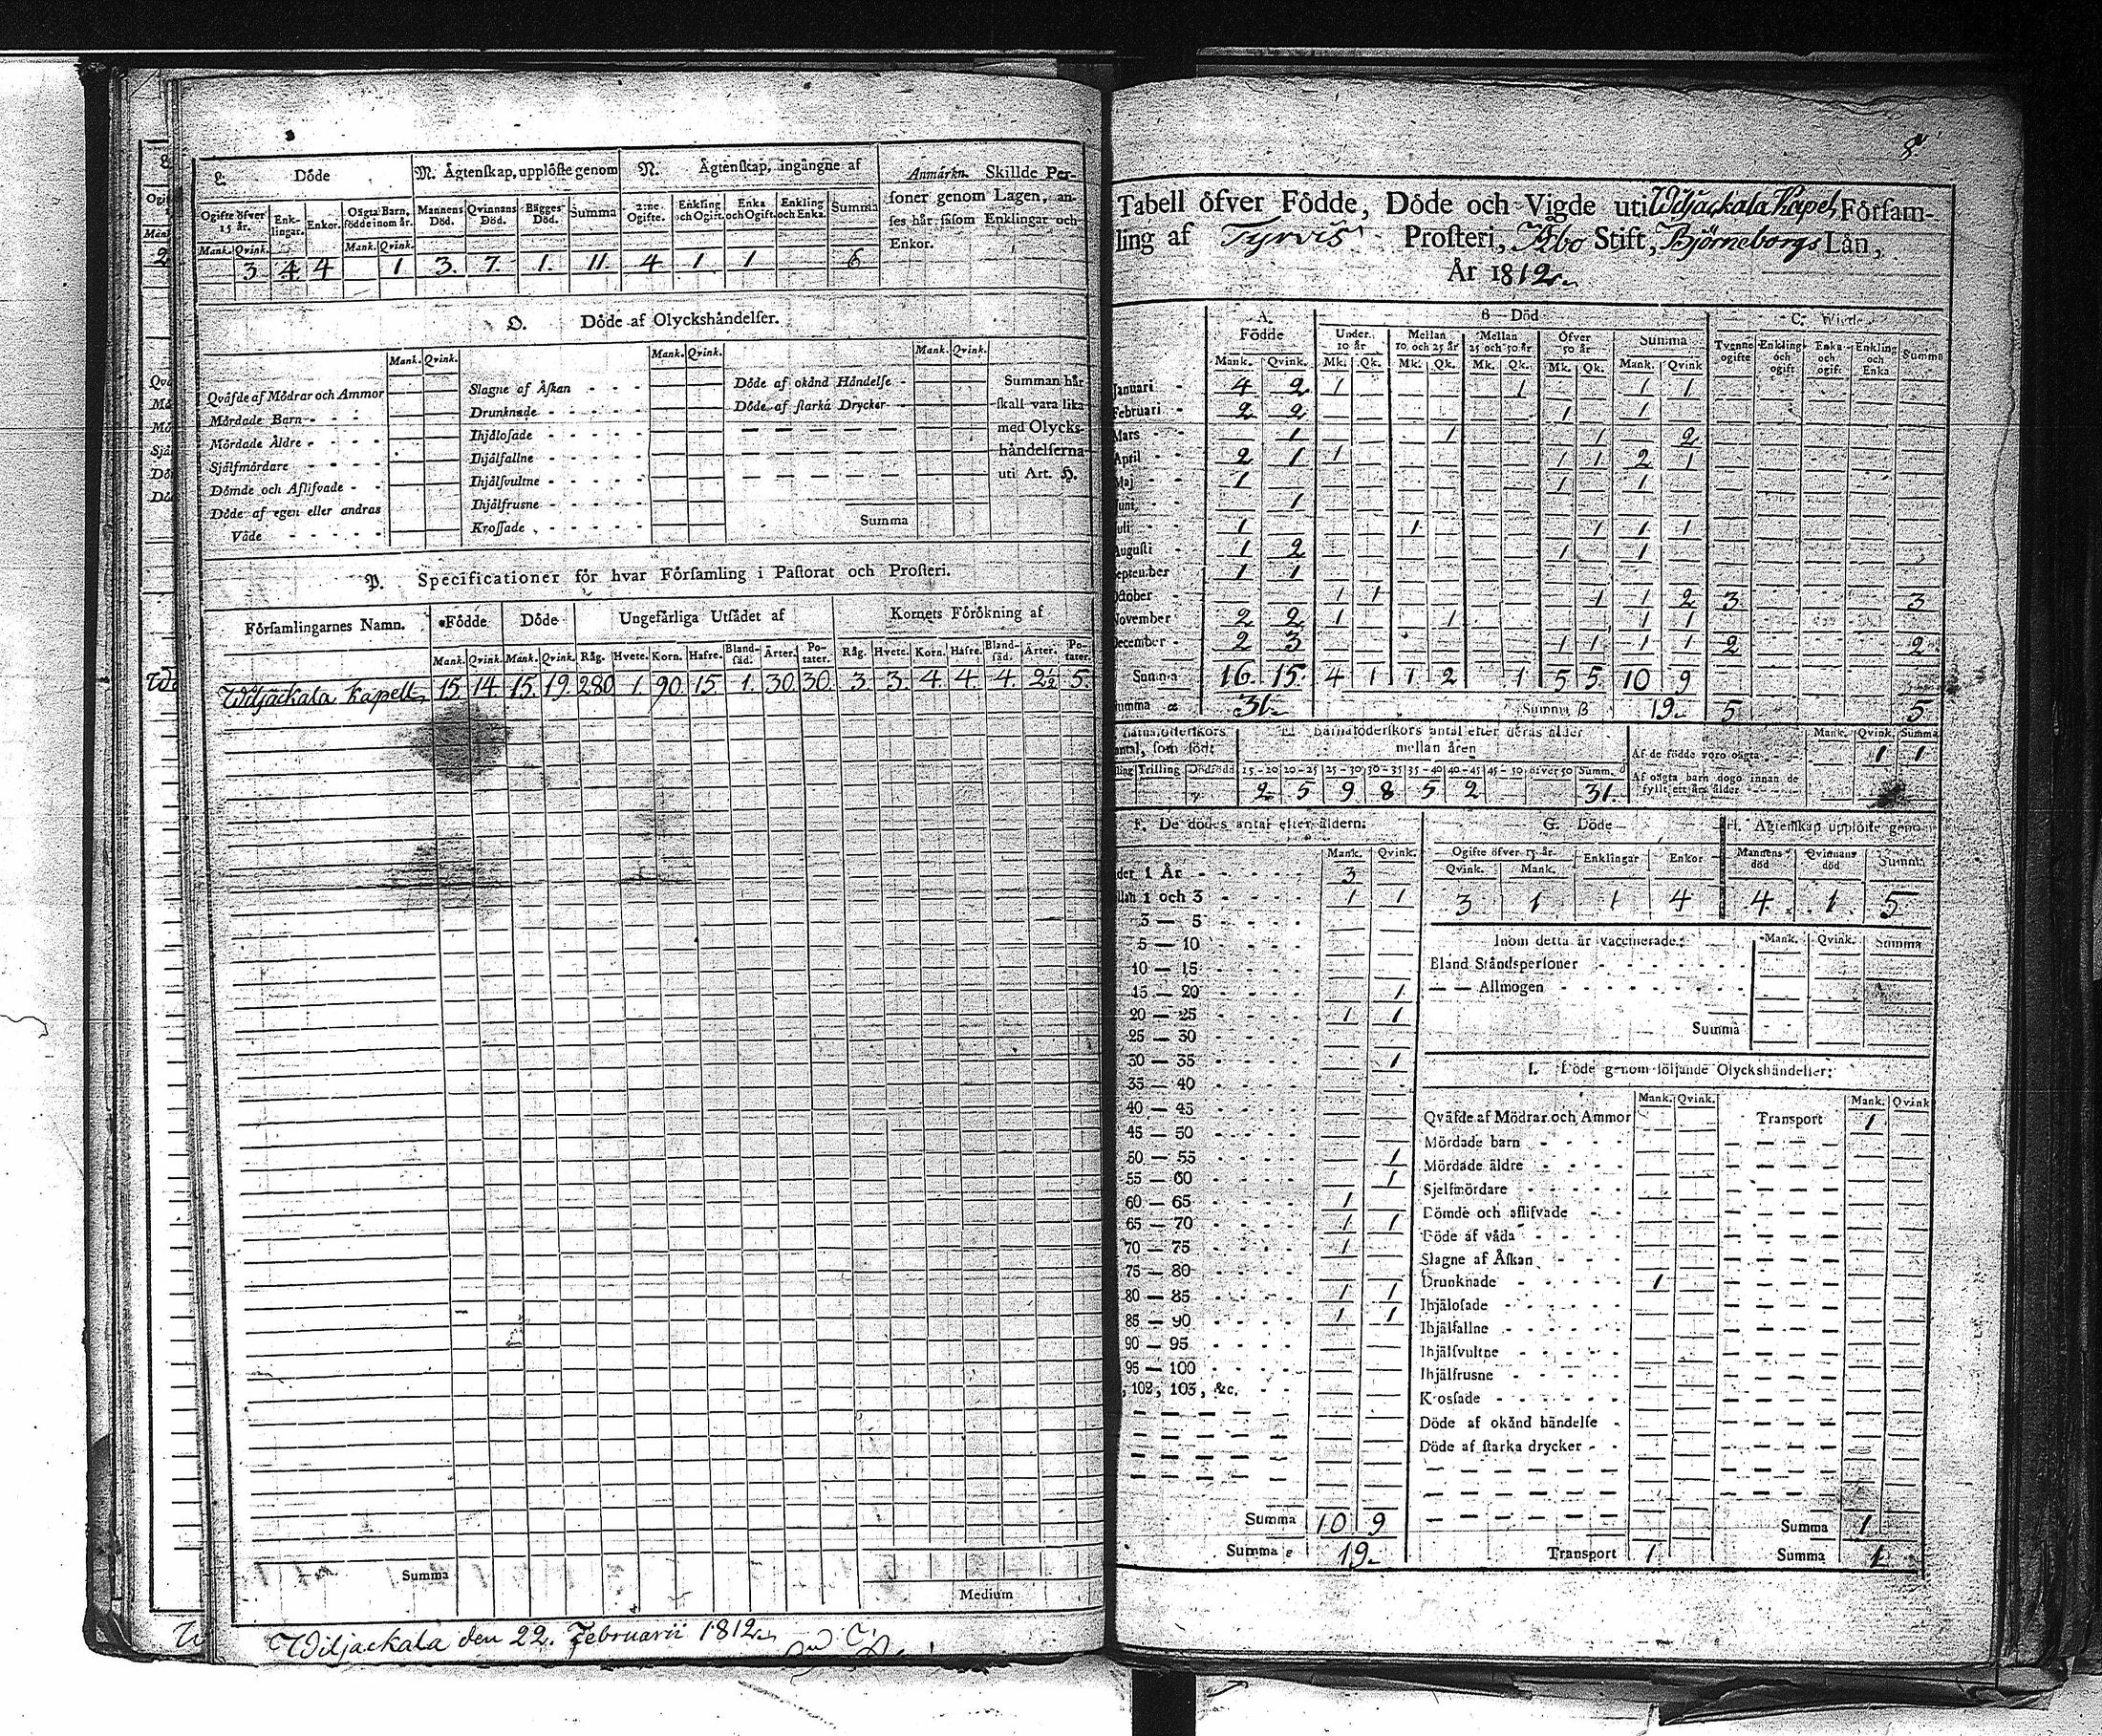 L. Döde
M. Ägtenskap, upplöste genom
N. Ägtenskap, ingångne af
Anmärkn. Skillde Personer
soner genom Lagen, an-
ses här såsom Enklingar och
Enkor.
Ogifte öfver 15 år. Enk-lingar. Enkor. Oägta Barn, födde inom år. Mannens Död. Qvinnans Död. Bägges Död. Summa 2:ne Ogifte. Enkling och Ogift. Enka och Ogift. Enkling och Enka. Summa
Mank. Qvink. Mank. Qvink.
3 4 4 1 3. 7. 1. 11. 4 1 1 6
O. Döde af Olyckshändelser.
Mank. Qvink. Mank. Qvink. Mank. Qvink.
Qväfde af Mödrar och Ammor Slagne af Åskan Döde af okänd Händelse Summan här
Mördade Barn Drunknade Döde af starka Drycker skall vara lika
Mördade Äldre Ihjälosade med Olycks-
Sjelfmördare Ihjälfallne händelserna
Dömde och Aflifvade Ihjälsvultne uti Art. H.
Döde af egen eller andras Ihjälfrusne
Våde Krossade Summa
P. Specificationer för hvar Församling i Pastorat och Prosteri.
Församlingarnes Namn. Födde Döde Ungefärliga Utsädet af Kornets Förökning af
Mank. Qvink. Mank. Qvink. Råg. Hvete. Korn. Hafre. Bland-säd. Ärter. Po-tater. Råg. Hvete. Korn. Hafre. Bland-säd. Ärter. Po-tater.
Wiljackala Kapell 15 14. 15. 19. 280 1. 90. 15. 1. 30. 30. 3. 3. 4. 4. 4. 2½ 5.
Summa
Medium
Wiljackala den 22. Februarii 1812.
8.
Tabell öfver Födde, Döde och Vigde uti Wiljackala Kapel Försam-
ling af Tyrvis Prosteri, Åbo Stift, Björneborgs Län,
År 1812.
A. Födde B Död C. Vigde
Under 10 år Mellan 10 och 25 år Mellan 25 och 50 år Öfver 50 år Summa Tvenne ogifte Enkling och ogift Enka och ogift Enkling och Enka Summa
Mank. Qvink. Mk. Qk. Mk. Qk. Mk. Qk. Mk. Qk. Mank. Qvink
Januari 4 2 1 1 1 1
Februari 2 2 1 1
Mars 1 1 1 2
April 2 1 1 1 1 2 1
Maj 1 1 1
Juni 1
Juli 1 1 1 1 1
Augusti 1 2 1 1
September 1 1
October 1 1 1 1 2 3 3
November 2 2 1 1 1 1
December 2 3 1 1 1 1 2 2
Summa 16. 15. 4 1 1 2 1 5 5 10 9
Summa 31. Summa B 19. 5 5
Barnaföderskors antal, som födt
E. Barnaföderskors antal efter deras ålder
mellan åren
Trilling Dödfödd 15-20 20-25 25-30 30-35 35-40 40-45 45-50 öfver 50 Summa
2 5 9 8 5 2 31.
Mank. Qvink. Summa
Af de födda voro oägta 1 1
Af oägta barn dogo innan de
fyllt ett års ålder
F. De dödes antal efter åldern.
Mank. Qvink.
Under 1 År 3
Mellan 1 och 3 1 1
3 — 5
5 — 10
10 — 15
15 — 20 1
20 — 25 1 1
25 — 30
30 — 35 1
35 — 40
40 — 45
45 — 50
50 — 55 1
55 — 60 1
60 — 65 1
65 — 70 1 1
70 — 75 1
75 — 80
80 — 85 1 1
85 — 90 1 1
90 — 95
95 — 100
, 102, 103, &c.
Summa 10 9
Summa e 19.
G. Döde
Ogifte öfver 15 år Enklingar Enkor
Qvink. Mank.
3 1 1 4
H. Ägtenskap upplöste genom
Mannens död Qvinnans död Summa
4. 1. 5
Inom detta år vaccinerade: Mank. Qvink. Summa
Bland Ståndspersoner
— — Allmogen
Summa
I. Döde genom följande Olyckshändelser:
Mank. Qvink. Mank. Qvink
Qväfde af Mödrar och Ammor Transport 1
Mördade barn
Mördade äldre
Sjelfmördare
Dömde och aflifvade
Döde af våda
Slagne af Åskan
Drunknade 1
Ihjälosade
Ihjälfallne
Ihjälsvultne
Ihjälfrusne
Krossade
Döde af okänd händelse
Döde af starka drycker
Summa 1
Transport 1. Summa 1